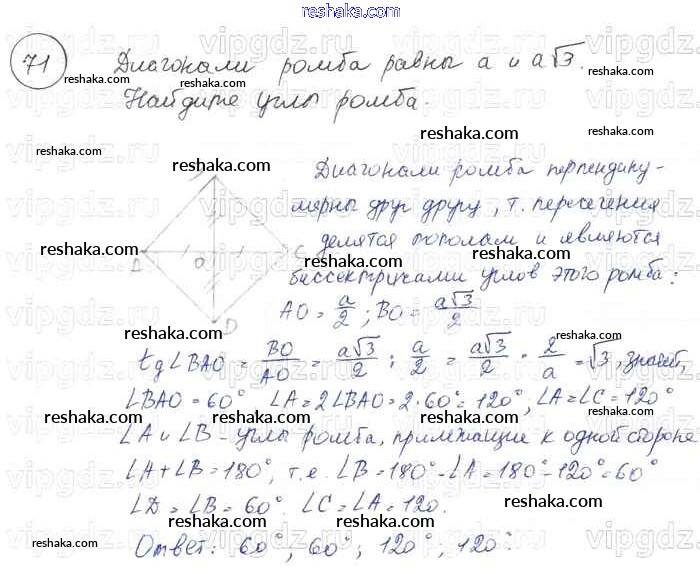 71
Диагонали ромба равны a и a√3.
Найдите углы ромба.
Диагонали ромба перпендику-
лярны друг другу, т. пересечения
делятся пополам и являются
биссектрисами углов этого ромба:
AO = a/2 ; BO = a√3/2
A
O
C
D
tg∠BAO = BO/AO = a√3/2 : a/2 = a√3/2 · 2/a = √3, значит,
∠BAO = 60° ∠A = 2∠BAO = 2·60° = 120°, ∠A = ∠C = 120°
∠A и ∠B - углы ромба, прилежащие к одной стороне
∠A + ∠B = 180°, т.е. ∠B = 180° - ∠A = 180° - 120° = 60°
∠D = ∠B = 60°. ∠C = ∠A = 120.
Ответ: 60°; 60°; 120°; 120°.
reshaka.com
vipgdz.ru